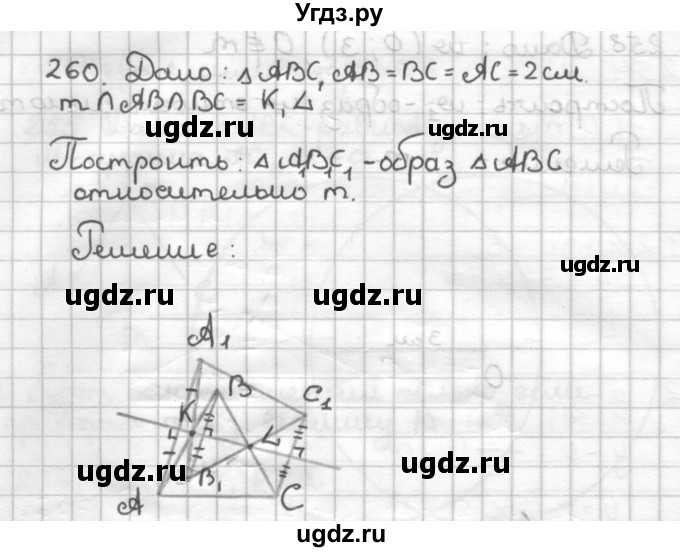 Угдз.ру
260. Дано: △ ABC, AB = BC = AC = 2 см.
m ∩ AB ∩ BC = K, L
ugdz.ru ugdz.ru
Построить: △ A₁B₁C₁ - образ △ ABC
относительно m.
Решение:
ugdz.ru
ugdz.ru ugdz.ru
A₁
B C₁
K
L
ugdz.ru ugdz.ru
B₁
A C
ugdz.ru